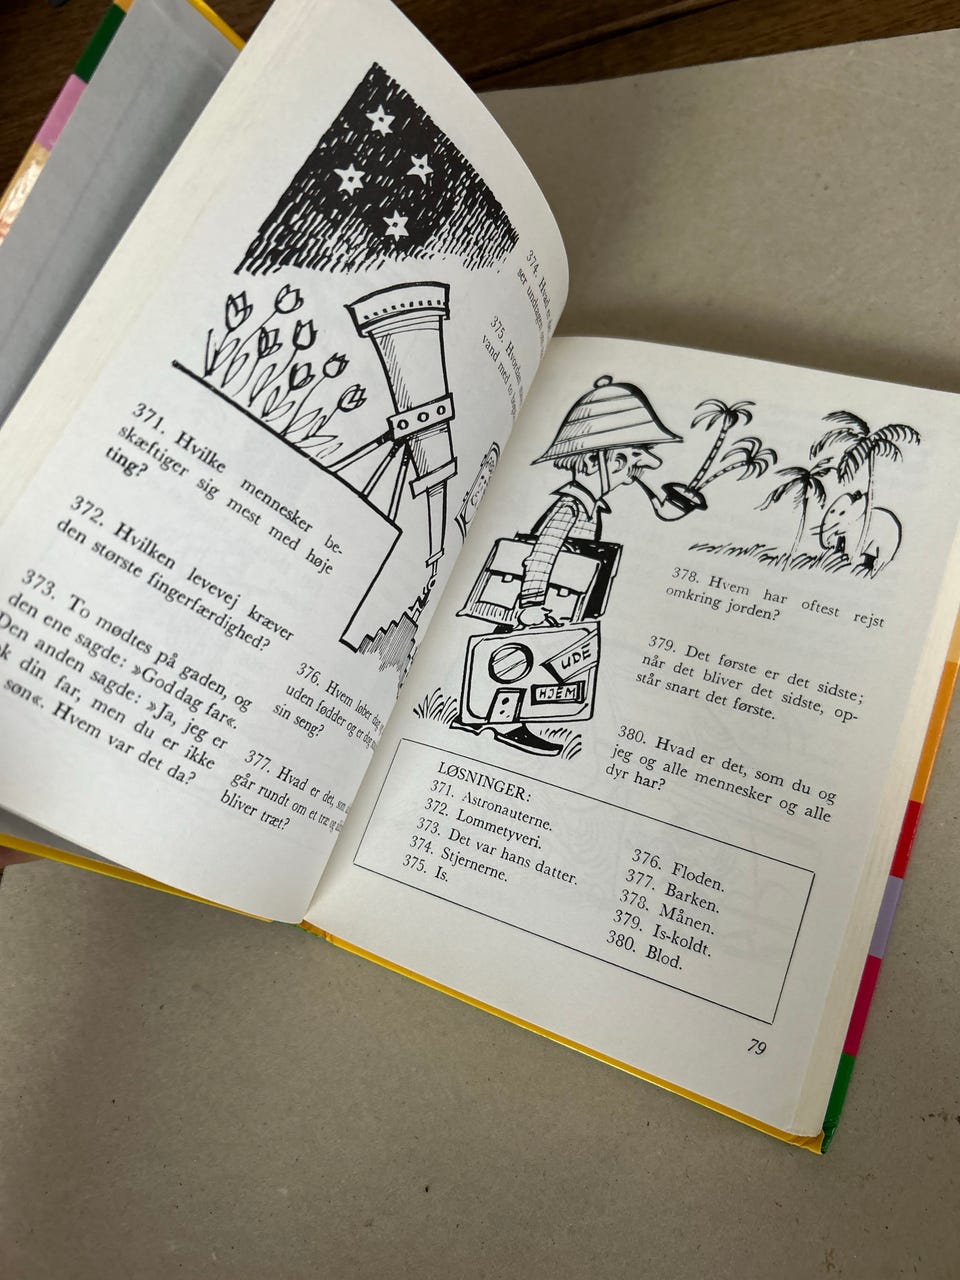 371. Hvilke mennesker be-
skæftiger sig mest med høje
ting?
372. Hvilken levevej kræver
den største fingerfærdighed?
373. To mødtes på gaden, og
den ene sagde: »Goddag far«.
Den anden sagde: »Ja, jeg er
din far, men du er ikke
søn«. Hvem var det da?
374. Hvad er
ser undtagen
375. Hvordan
vand med to
376. Hvem løber dag
uden fødder og er dog
sin seng?
377. Hvad er det, som
går rundt om et træ og
bliver træt?
UDE
HJEM
378. Hvem har oftest rejst
omkring jorden?
379. Det første er det sidste;
når det bliver det sidste, op-
står snart det første.
380. Hvad er det, som du og
jeg og alle mennesker og alle
dyr har?
LØSNINGER:
371. Astronauterne.
372. Lommetyveri.
373. Det var hans datter.
374. Stjernerne.
375. Is.
376. Floden.
377. Barken.
378. Månen.
379. Is-koldt.
380. Blod.
79